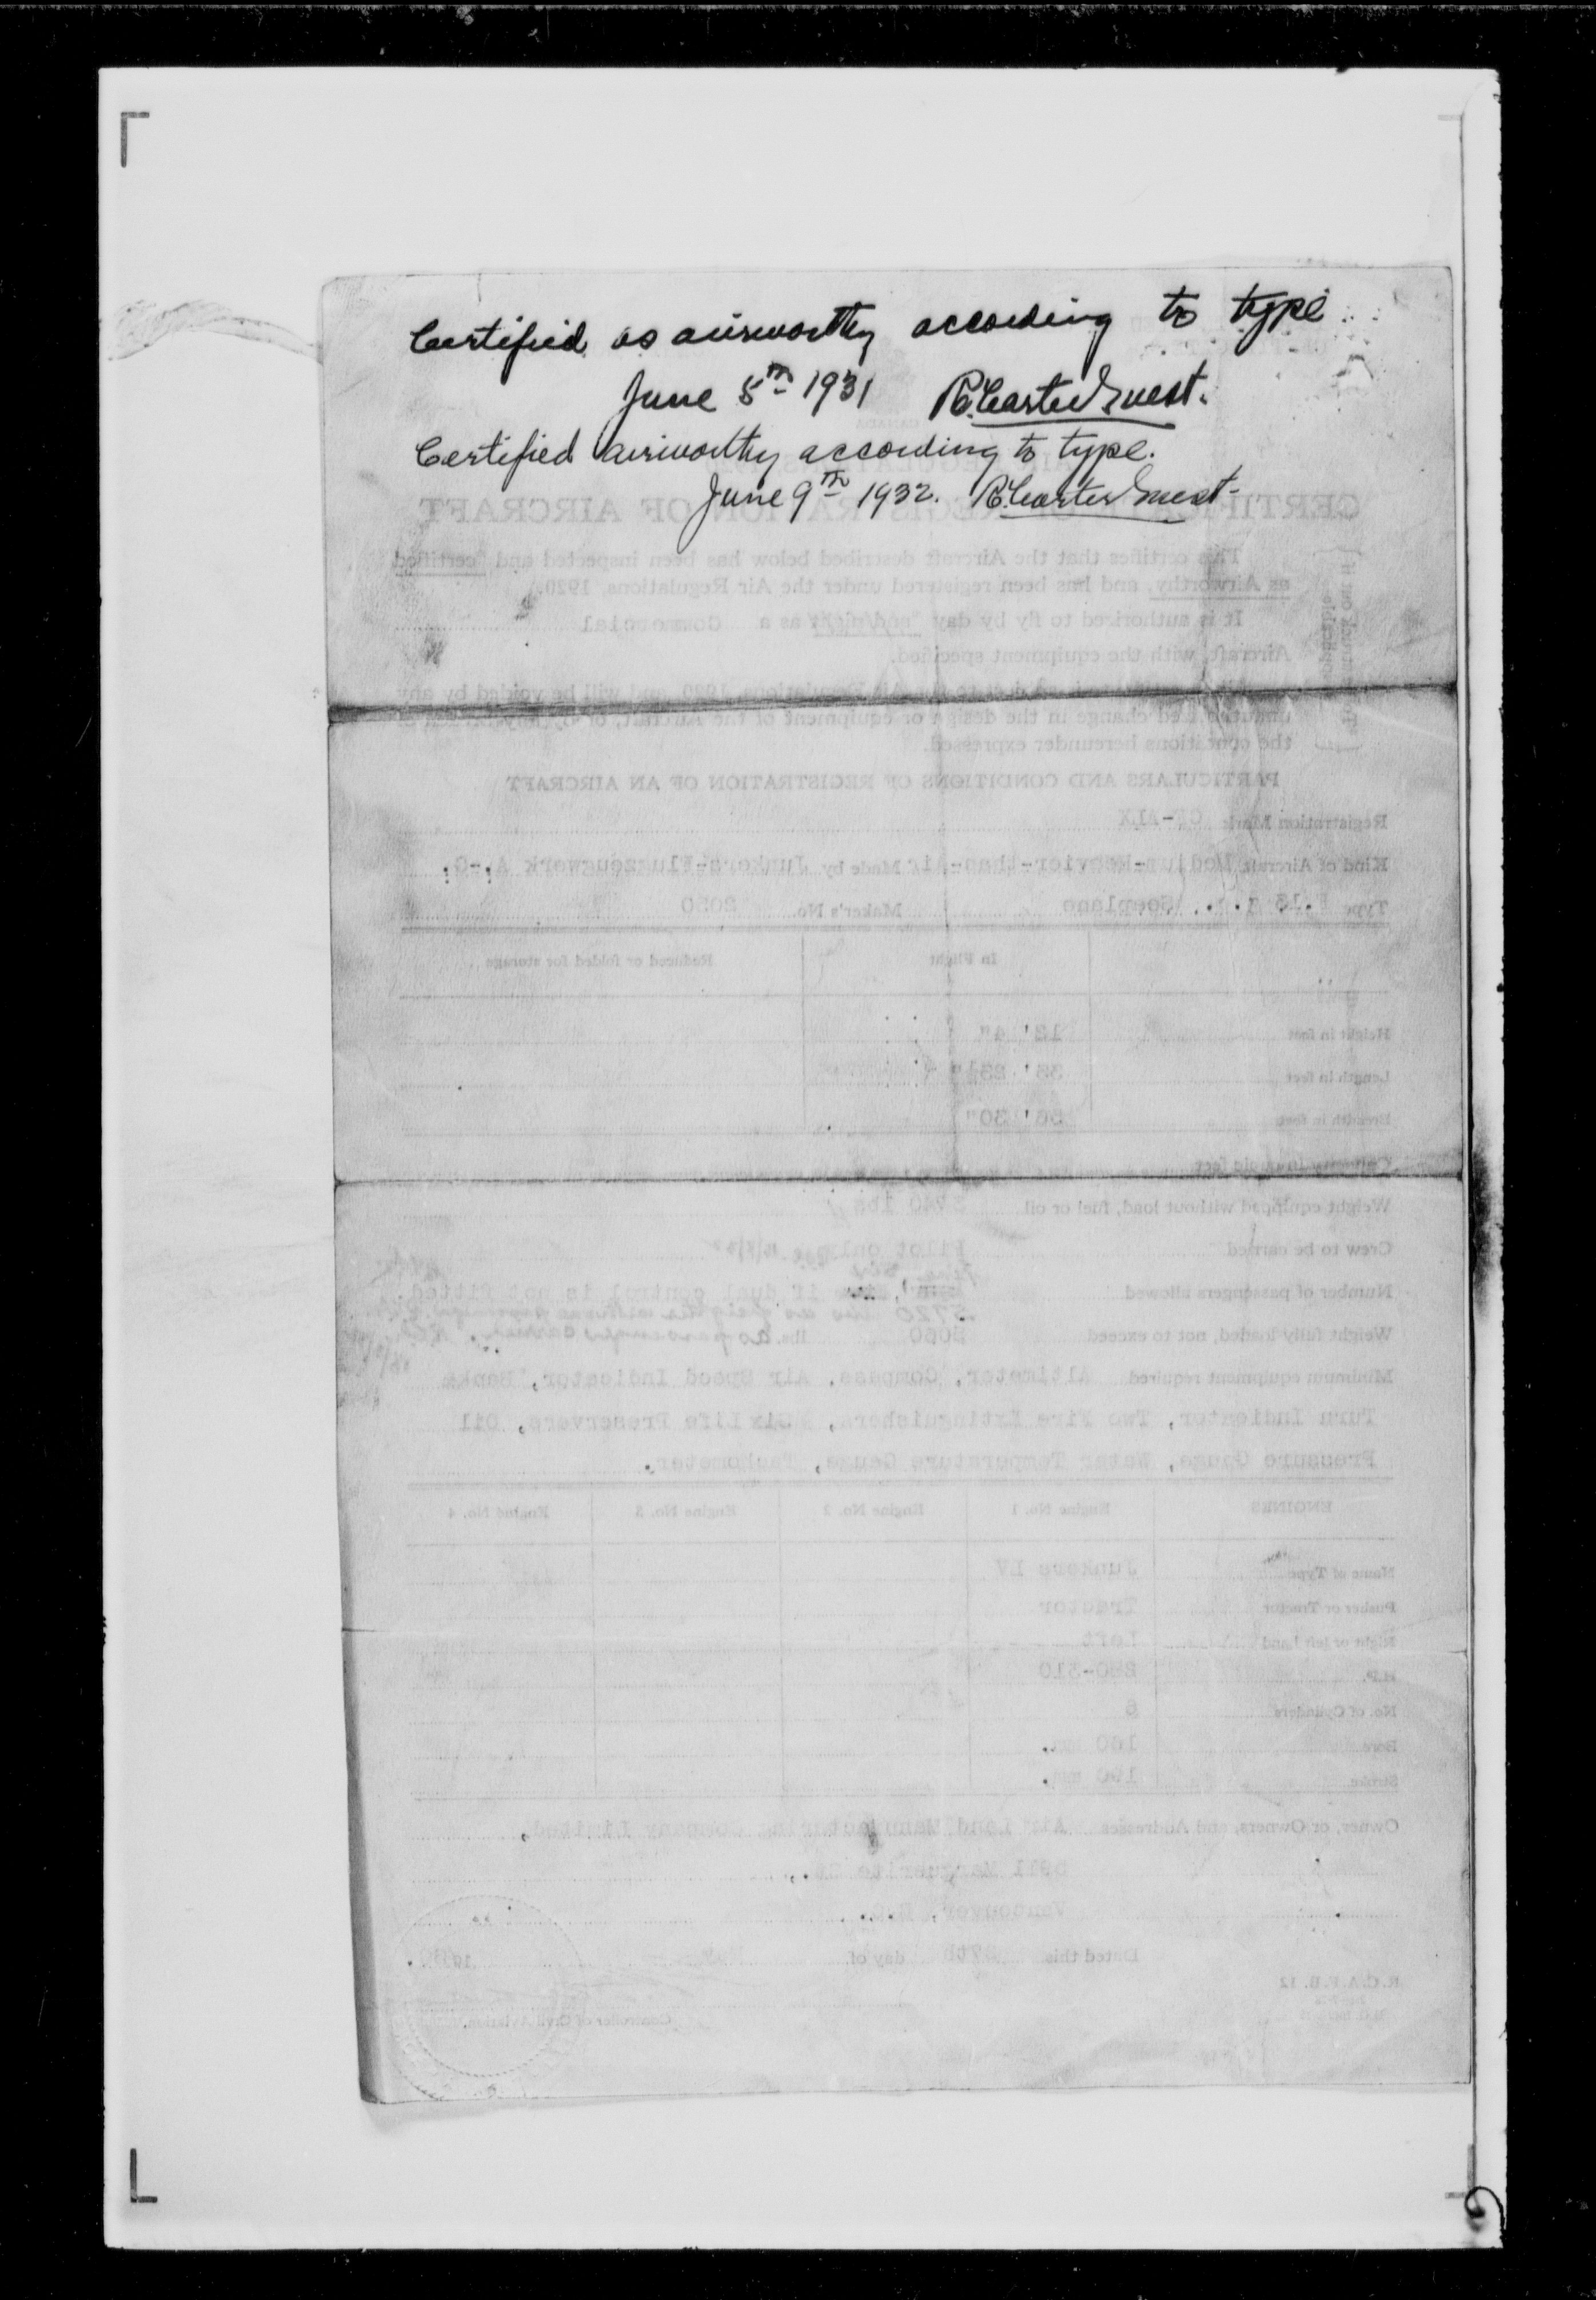 Certified as airworthy according to type
June 5th 1931 Carter Guest.
Certified airworthy according to type.
June 9th 1932. Carter Guest
CERTIFICATE OF REGISTRATION OF AIRCRAFT
This certifies that the Aircraft described below has been inspected and certified
as Airworthy, and has been registered under the Air Regulations, 1920.
It is authorized to fly by day as a Commercial
Aircraft, with the equipment specified.
change in the design or equipment of the Aircraft,
the conditions hereunder expressed.
PARTICULARS AND CONDITIONS OF REGISTRATION OF AN AIRCRAFT
Registration Mark CF-ALX
Kind of Aircraft Made by Junkers-Flugzeugwerk A.-G.
Type Seaplane Maker's No. 2050
In Flight Reduced or folded for storage
Height in feet
Length in feet
Breadth in feet
Weight equipped without load, fuel or oil 3740 lbs
Crew to be carried Pilot only
Number of passengers allowed if dual control is not fitted
5720 lbs as
Weight fully loaded, not to exceed lbs. as
Minimum equipment required Altimeter, Compass, Air Speed Indicator, Bank
Turn Indicator, Two Fire Extinguishers, Six Life Preservers, Oil
Pressure Gauge, Water Temperature Gauge, Tachometer.
ENGINES Engine No. 1 Engine No. 2 Engine No. 3 Engine No. 4
Name of Type Junkers LV
Pusher or Tractor Tractor
Right or left hand Left
H.P. 280-310
No. of Cylinders 6
Bore 160 mm.
Stroke 190 mm.
Owner, or Owners, and Addresses Air Land Manufacturing Company Limited,
Marguerite St.,
Vancouver, B.C.
Dated this 27th day of
Controller of Civil Aviation.
R.C.A.F. B. 12